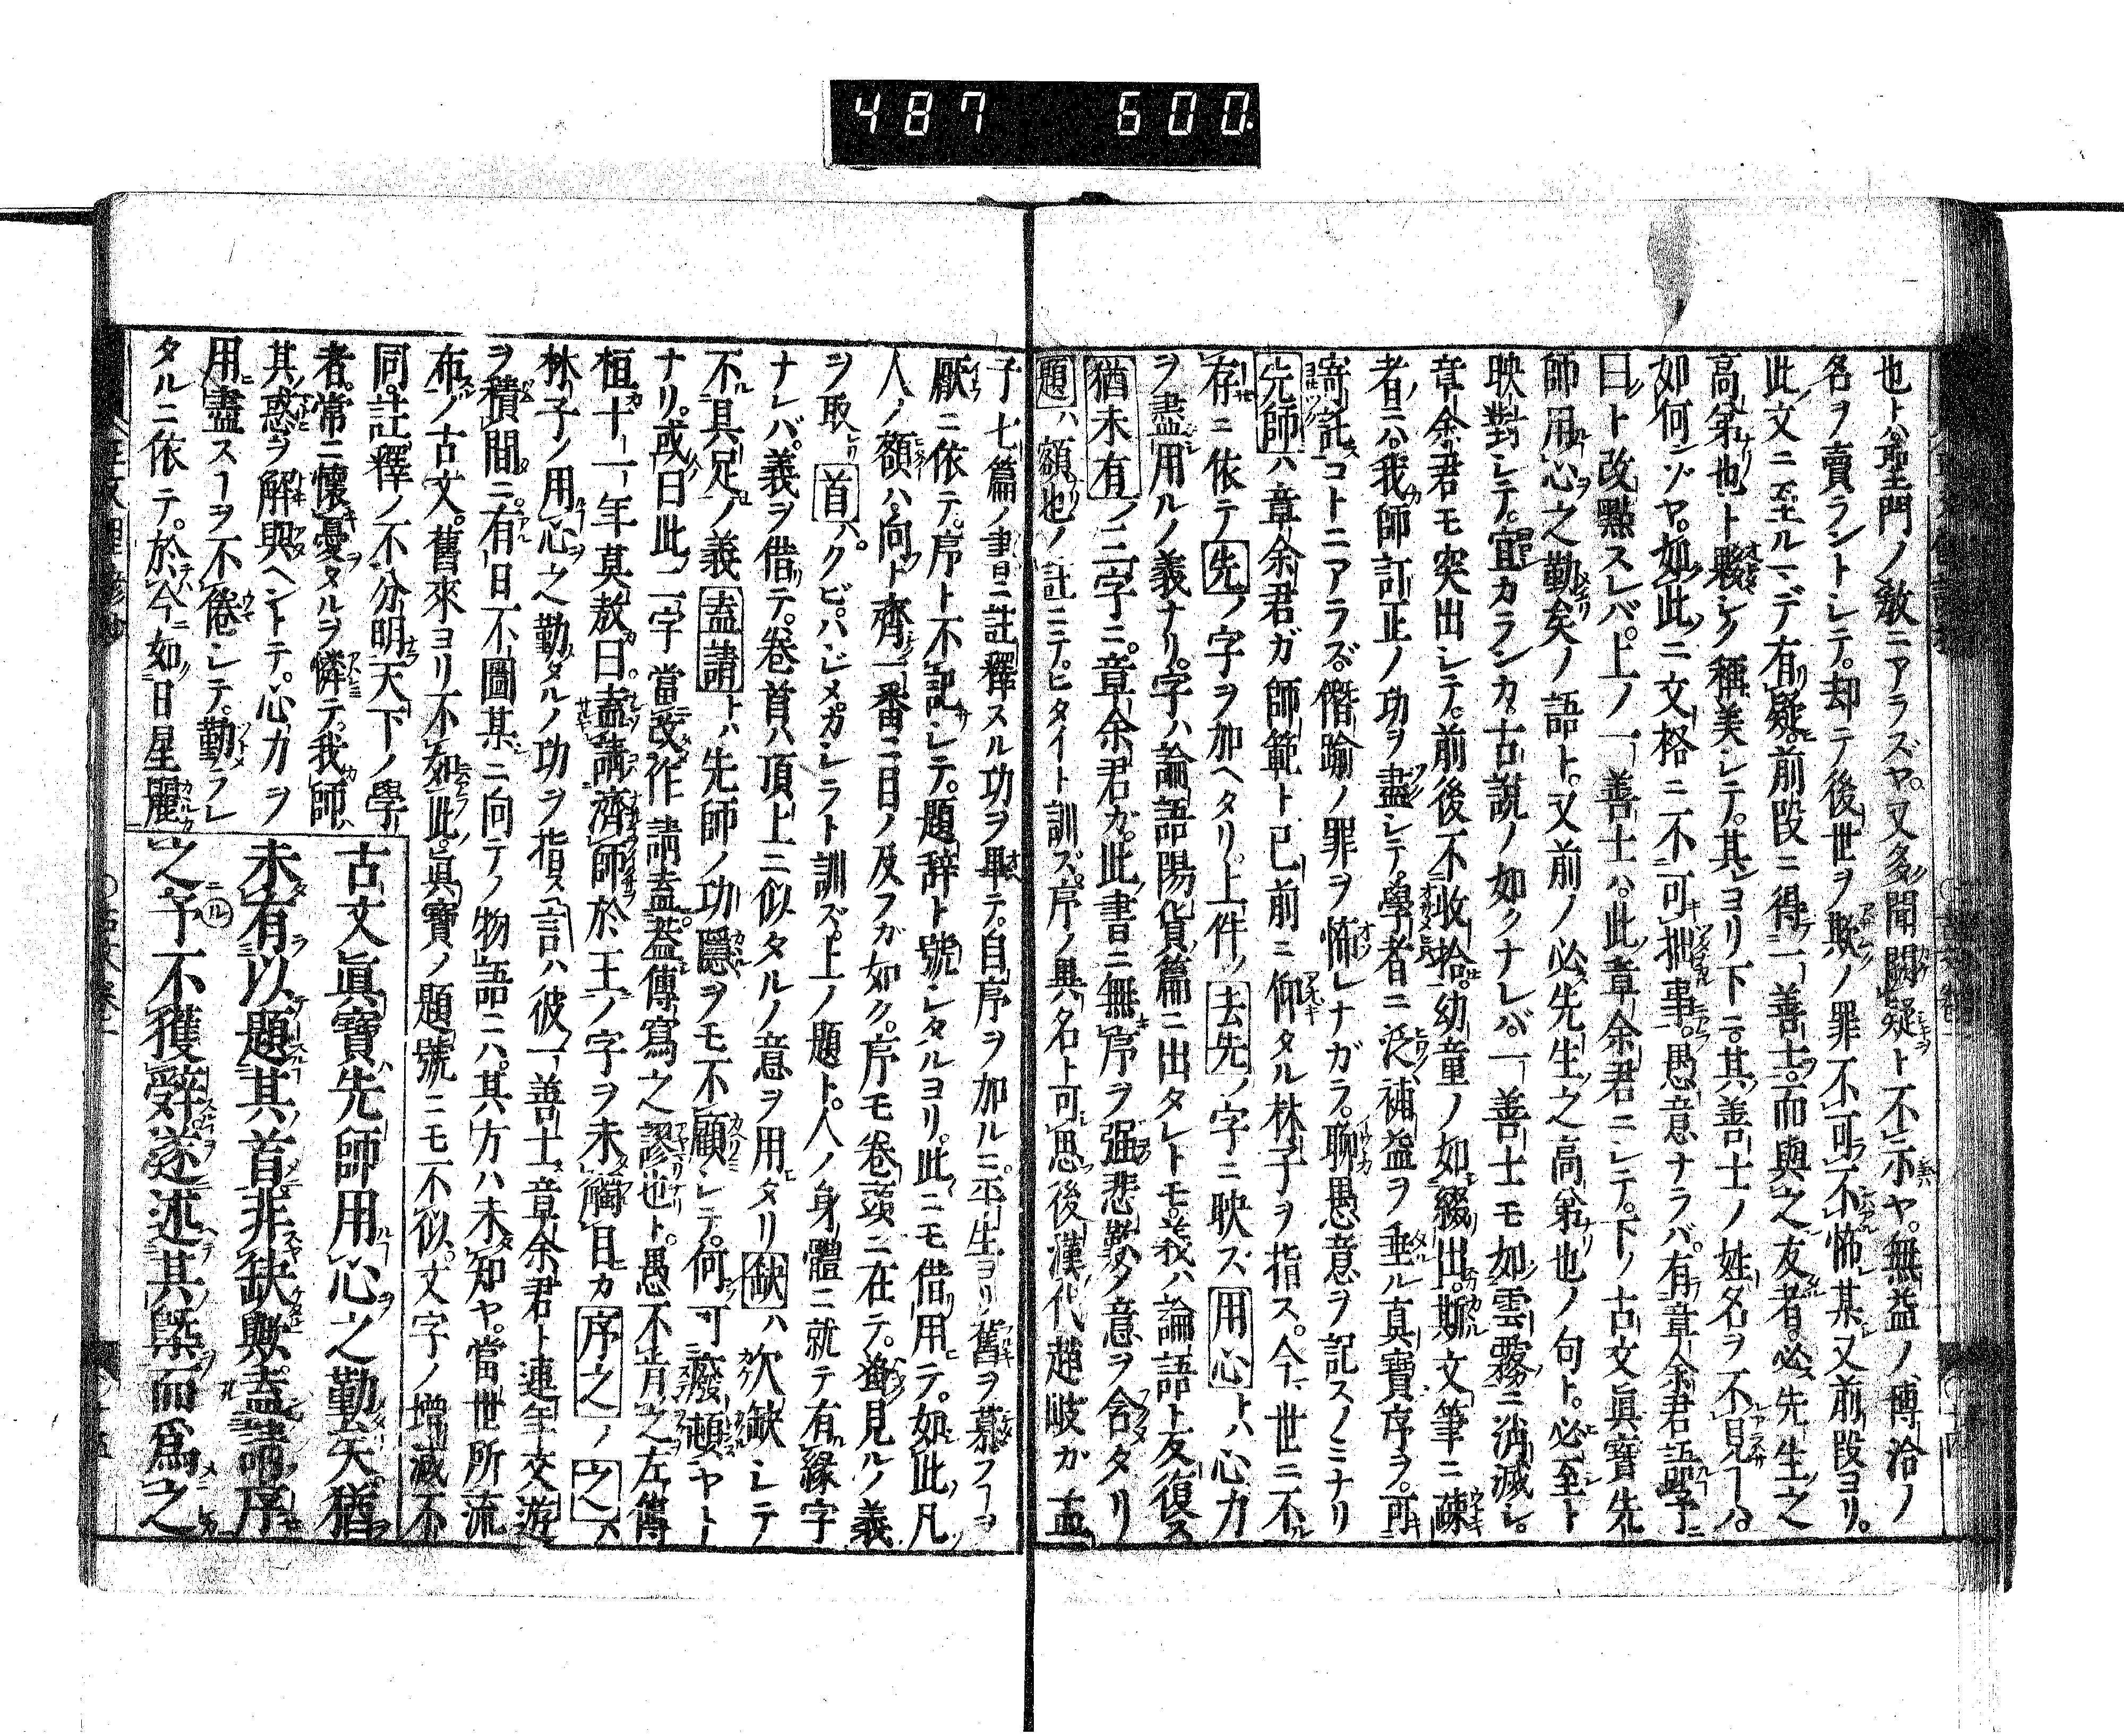 487 600.
也トハ爺聖門ノ敎ニアラズヤ。又多聞闕疑ト不示ヤ。無益ノ博洽ノ
名ヲ賣ラントレテ。却テ後世ヲ欺ノ罪不可不怖。某又前段ヨリ。
此文ニ至ルマデ有疑。前段ニ得一善士。而與之友者。必先生之
高第也ト夥シク稱美レテ。其ヨリ下ニ其善士ノ姓名ヲ不見ヿハ。
如何ンゾヤ。如此ニ文格ニ不可拙事。愚意ナラバ。有章余君語予
曰ト改點スレバ。上ノ一善士ハ。此章余君ニレテ。下ノ古文眞寶先
師用心之勤矣ノ語ト。又前ノ必先生之高第也ノ句ト。必至ト
映對レテ。宜カランカ。古說ノ如クナレバ。一善士モ如雲霧ニ消滅レ。
章余君モ突出レテ。前後不收拾。幼童ノ如綴出。斯文筆ニ疎
者ニハ。我師訂正ノ功ヲ盡レテ。學者ニ泛補益ヲ垂ル真寶序ヲ。可
寄託コトニアラズ。僭踰ノ罪ヲ怖レナガラ。聊愚意ヲ記スノミナリ
先師ハ章余君ガ師範ト已前ニ仰タル林子ヲ指ス。今世ニ不
存ニ依テ先ノ字ヲ加ヘタリ。上件ノ去先ノ字ニ映ズ用心トハ心力
ヲ盡用ルノ義ナリ。字ハ論語陽貨篇ニ出タレトモ。義ハ論語ト友復ス
猶未有ノ三字ニ。章余君ガ。此書ニ無序ヲ强悲歎タ意ヲ含タリ
題ハ額也ノ註ニテ。ヒタイト訓ズ。序ノ異名ト可思後漢代趙岐カ孟
子七篇ノ書ニ註釋スル功ヲ畢テ。自序ヲ加ルニ。平生ヨリ舊ヲ慕フヿヲ
厭ニ依テ。序ト不記レテ。題辞ト號シタルヨリ。此ニモ借用テ。如此凡
人ノ額ハ。向ト齊一番ニ目ノ及フガ如ク。序モ卷頭ニ在テ。逈見ルノ義
ヲ取首ハ。クビ。ハジメ。カレラト訓ズ。上ノ題ト。人ノ身體ニ就テ有緣字
ナレバ。義ヲ借テ。卷首ハ頂上ニ似タルノ意ヲ用タリ缺ハ欠缺レテ
不具足ノ義盍請トハ先師ノ功隱ヲモ不顧レテ。何可廢頓ヤト
ナリ。或曰此二字當改作請盍。葢傳寫之謬也ト。愚不肯之左傳
桓十一年莫敖曰盍請濟師於王ノ字ヲ未觸目カ序之ノ之ハ
林子ノ用心之勤タルノ功ヲ指ス言ハ彼一善士章余君ト連年交遊
ヲ積間ニ。有日不圖某ニ向テノ物語ニハ。其方ハ未知ヤ。當世所流
布ノ古文。舊來ヨリ不如此。眞寶ノ題號ニモ不似。文字ノ增減不
同。註釋ノ不分明天下ノ學
者。常ニ懷憂タルヲ憐テ。我師
其惑ヲ解與ヘントテ。心力ヲ
用盡スヿヲ不倦レテ。勤ラレ
タルニ依テ。於今如日星麗
古文眞寶先師用心之勤矣猶
未有以題其首非缺歟盍請序
之予不獲辭遂述其槩而爲之